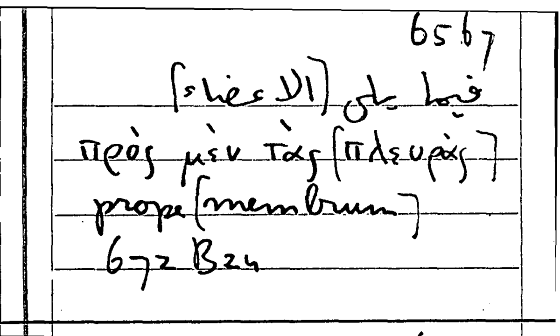 6567
فيما يلى
πρὸς μὲν τὰς [πλευρὰς]
prope [membrum]
672 B24